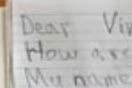 Dear Vi
How are
My name